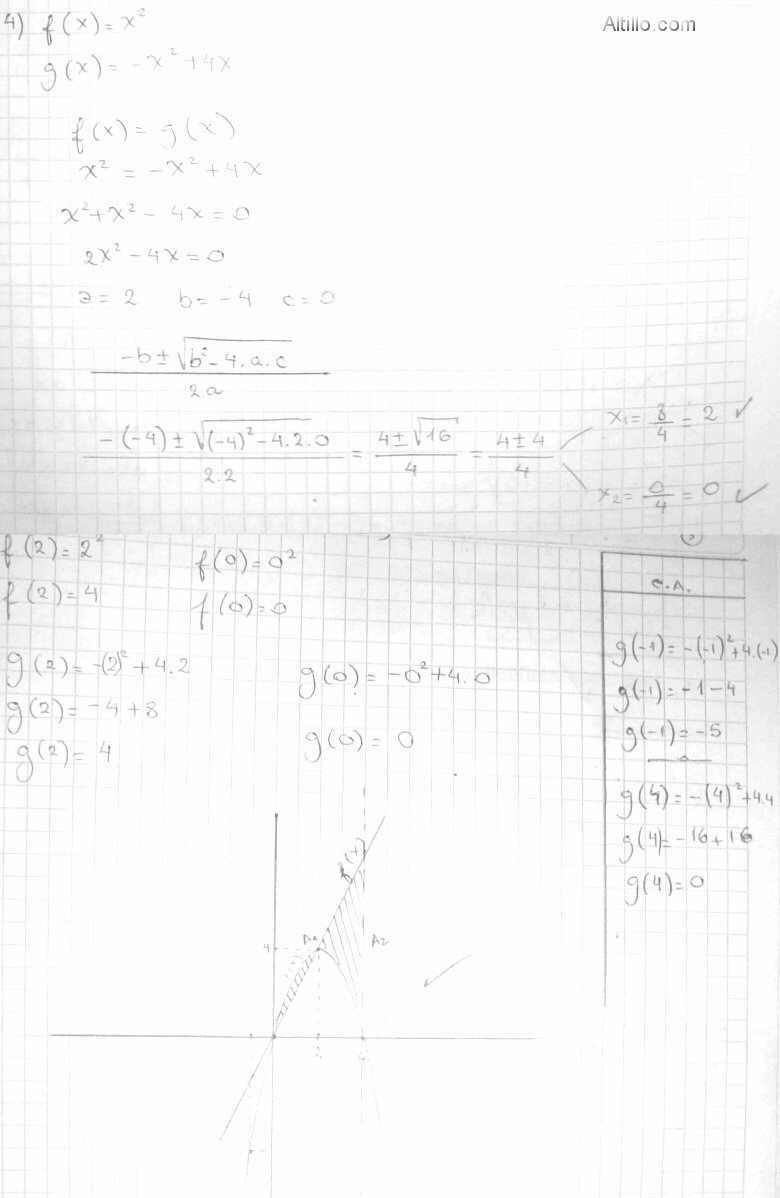 Altillo.com
4) f(x)= x²
g(x)= -x² + 4x
f(x) = g(x)
x² = -x² + 4x
x² + x² - 4x = 0
2x² - 4x = 0
a = 2 b = -4 c = 0
-b ± √b² - 4.a.c
2a
-(-4) ± √(-4)² - 4.2.0 = 4 ± √16 = 4 ± 4
2.2 4 4
x₁ = 8/4 = 2 ✓
x₂ = 0/4 = 0 ✓
f(2) = 2²
f(2) = 4
f(0) = 0²
f(0) = 0
g(2) = -(2)² + 4.2
g(2) = -4 + 8
g(2) = 4
g(0) = -0² + 4.0
g(0) = 0
C.A.
g(-1) = -(-1)² + 4.(-1)
g(-1) = -1 - 4
g(-1) = -5
g(4) = -(4)² + 4.4
g(4) = -16 + 16
g(4) = 0
f(x)
4
A1
A2
2
4